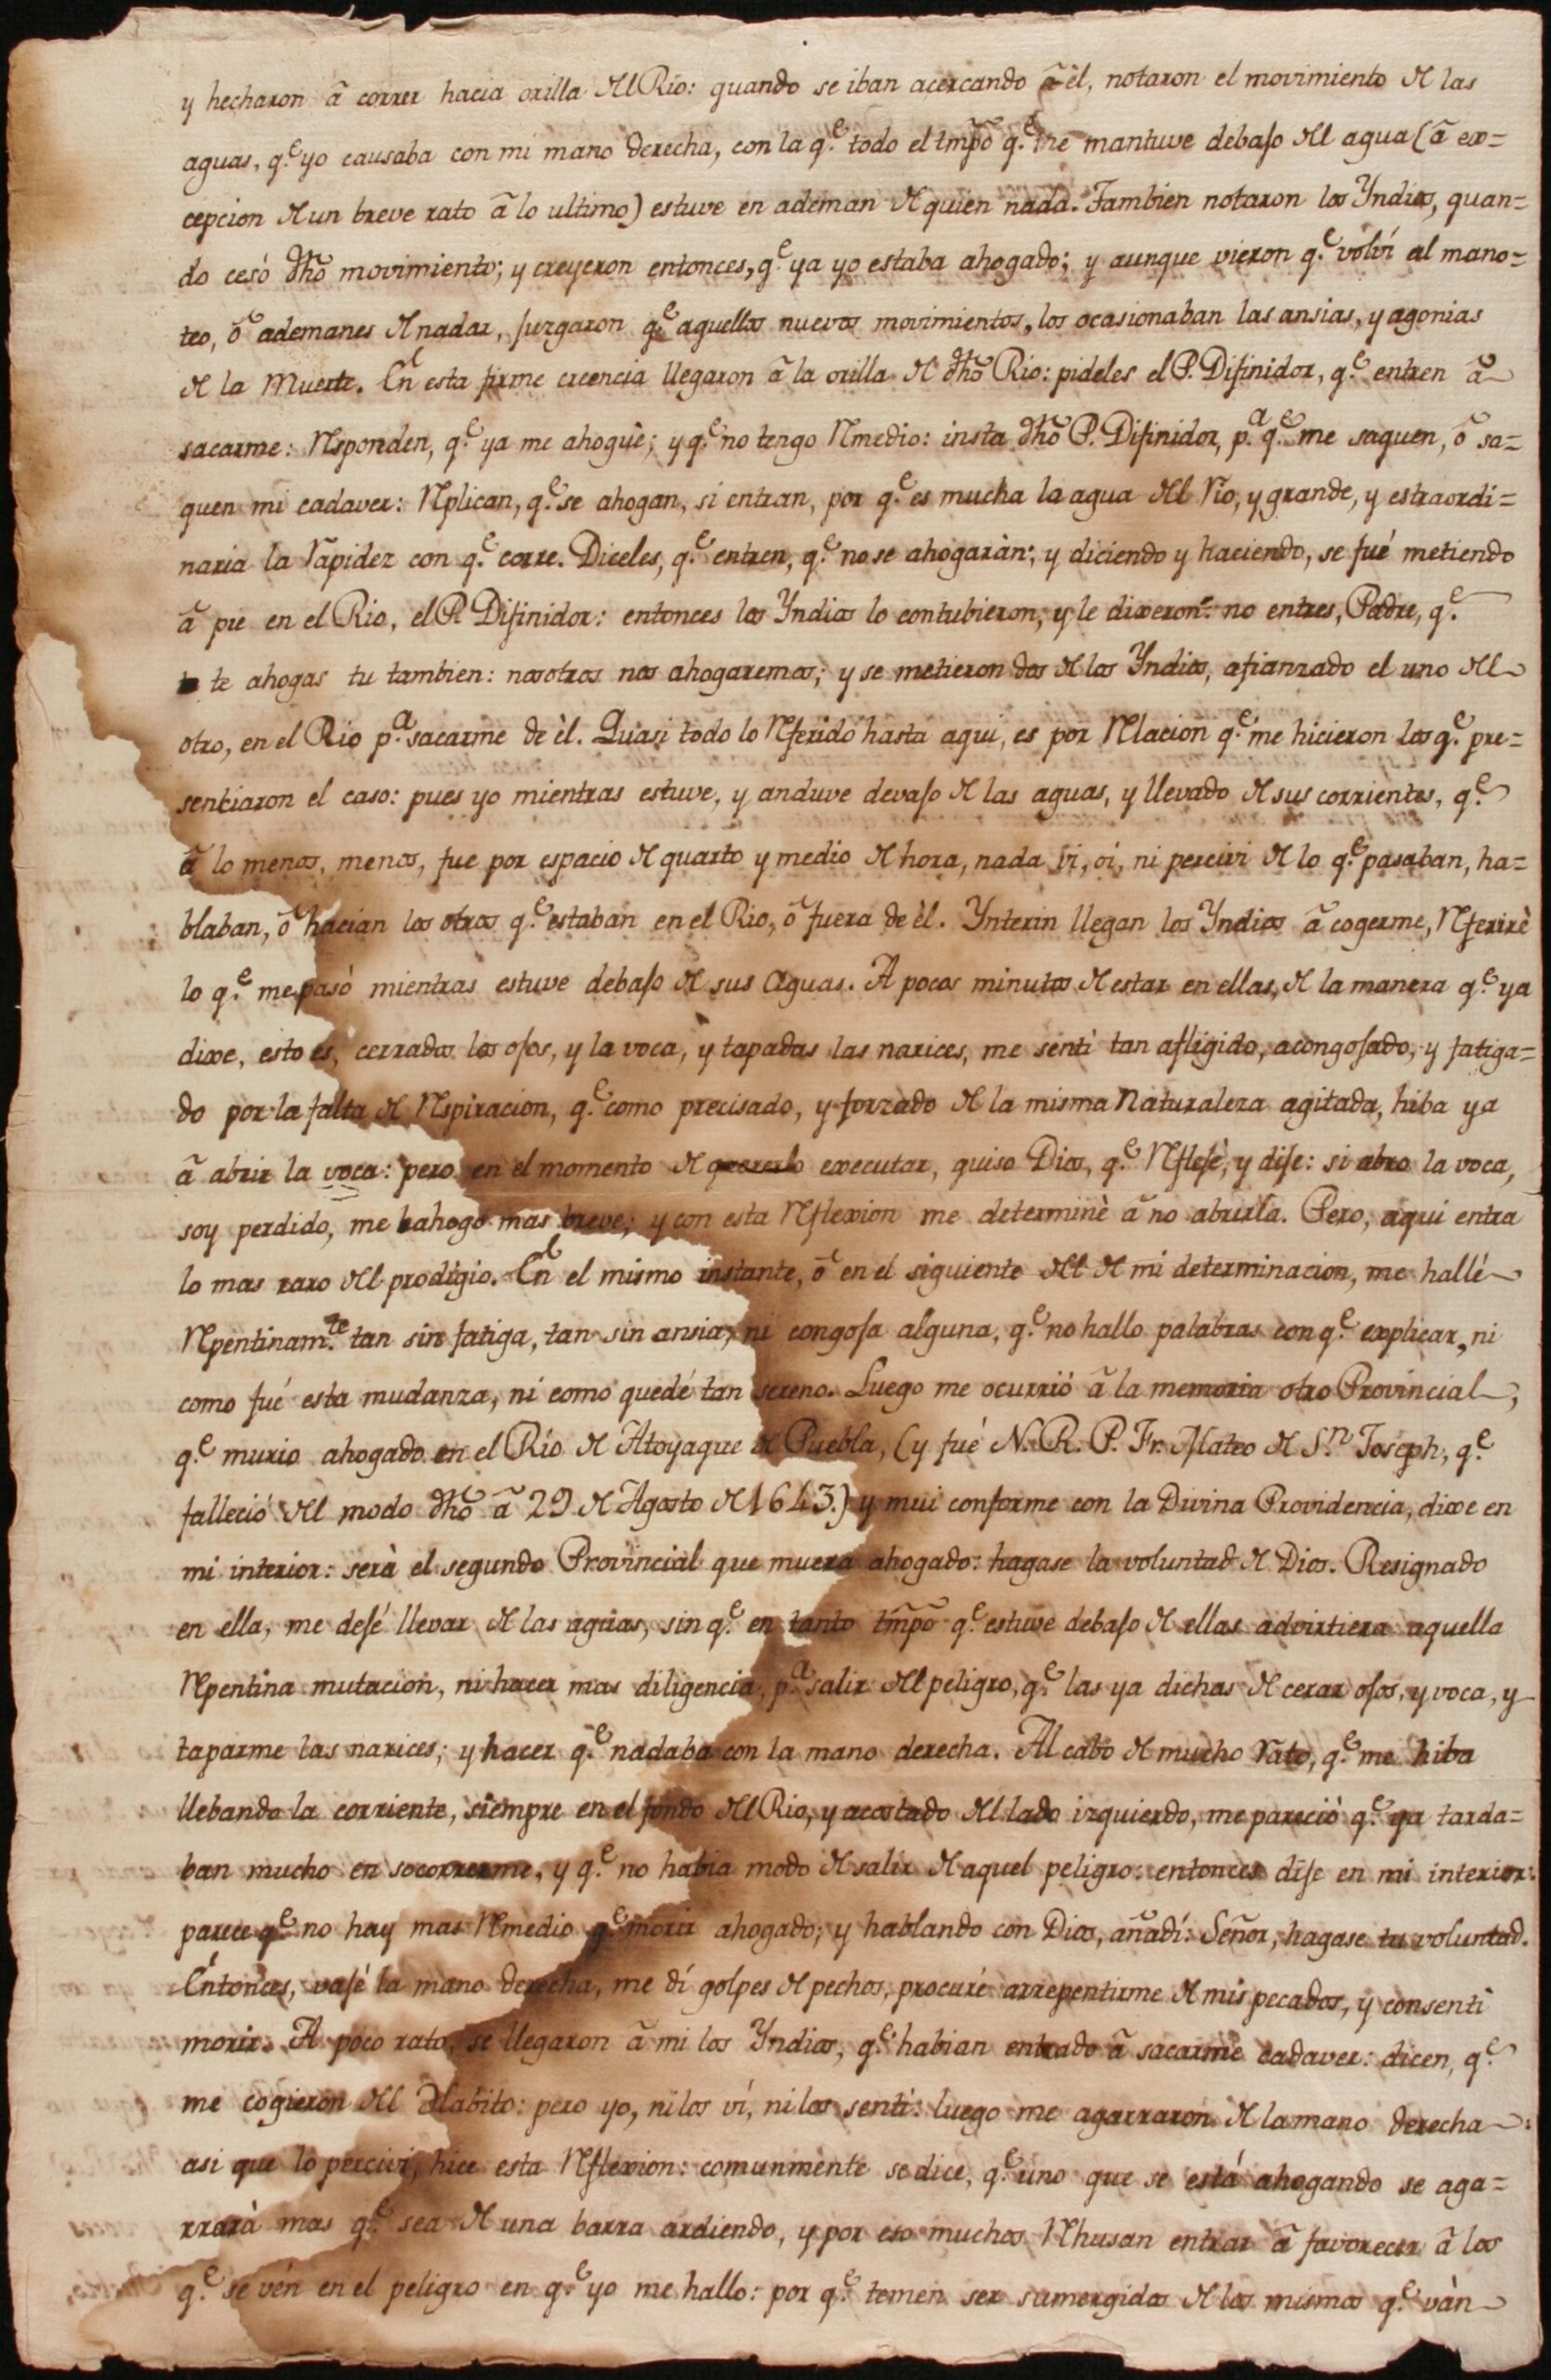 y hecharon â correr hacia orilla del Rio: quando se iban acercando â èl, notaron el movimiento de las
aguas, q.e yo causaba con mi mano derecha, con la q.e todo el tmpõ q.e me mantuve debajo del agua (â ex=
cepcion de un breve rato â lo ultimo) estuve en ademan de quien nada. Tambien notaron los Yndios, quan=
do cesó dhõ movimiento; y creyeron entonces, q.e ya yo estaba ahogado; y aunque vieron q.e volví al mano=
teo, ô ademanes de nadar, juzgaron q.e aquellos nuevos movimientos, los ocasionaban las ansias, y agonias
de la Muerte. En esta firme creencia llegaron â la orilla de dhõ Rio: pideles el P. Difinidor, q.e entren â
sacarme: Responden, q.e ya me ahoguè; y q.e no tengo Remedio: insta dhõ P. Difinidor, p.a q.e me saquen, ô sa=
quen mi cadaver: Replican, q.e se ahogan, si entran, por q.e es mucha la agua del Rio, y grande, y estraordi=
naria la Rapidez con q.e corre. Diceles, q.e entren, q.e no se ahogaràn; y diciendo y haciendo, se fué metiendo
â pie en el Rio, el P. Difinidor: entonces los Yndios lo contubieron, y le dixeron: no entres, Padre, q.e
te ahogas tu tambien: nosotros nos ahogaremos; y se metieron dos de los Yndios, afianzado el uno del
otro, en el Rio p.a sacarme de èl. Quasi todo lo Referido hasta aqui, es por Relacion q.e me hicieron los q.e pre=
senciaron el caso: pues yo mientras estuve, y anduve devajo de las aguas, y llevado de sus corrientes, q.e
â lo menos, menos, fue por espacio de quarto y medio de hora, nada vi, oí, ni percivi de lo q.e pasaban, ha=
blaban, ô hacian los otros q.e estaban en el Rio, ô fuera de èl. Ynterin llegan los Yndios â cogerme, Referirè
lo q.e me pasó mientras estuve debajo de sus Aguas. A pocos minutos de estar en ellas, de la manera q.e ya
dixe, esto es, cerrados los ojos, y la voca, y tapadas las narices, me sentì tan afligido, acongojado, y fatiga=
do por la falta de Respiracion, q.e como precisado, y forzado de la misma Naturaleza agitada, hiba ya
â abrir la voca: pero en el momento de quererlo executar, quiso Dios, q.e Reflejè, y dije: si abro la voca,
soy perdido, me ahogo mas breve; y con esta Reflexion me determinè â no abrirla. Pero, aqui entra
lo mas raro del prodigio. En el mismo instante, ô en el siguiente del de mi determinacion, me hallé
Repentinam.te tan sin fatiga, tan sin ansia, ni congoja alguna, q.e no hallo palabras con q.e explicar, ni
como fué esta mudanza, ni como quedé tan sereno. Luego me ocurrió â la memoria otro Provincial,
q.e murio ahogado en el Río de Atoyaque de Puebla, (y fué N. R. P. Fr. Mateo de S.n Joseph, q.e
falleció del modo dhõ â 29 de Agosto de 1643.) y mui conforme con la Divina Providencia, dixe en
mi interior: serà el segundo Provincial que muera ahogado: hagase la voluntad de Dios. Resignado
en ella, me dejé llevar de las aguas, sin q.e en tanto tmpõ q.e estuve debajo de ellas advirtiera aquella
Repentina mutacion, ni hacer mas diligencia, p.a salir del peligro, q.e las ya dichas de cerar ojos, y voca, y
taparme las narices; y hacer q.e nadaba con la mano derecha. Al cabo de mucho Rato, q.e me hiba
llebando la corriente, siempre en el fondo del Rio, y acostado del lado izquierdo, me pareciò q.e ya tarda=
ban mucho en socorrerme, y q.e no habia modo de salir de aquel peligro: entonces dije en mi interior:
parece q.e no hay mas Remedio q.e morir ahogado; y hablando con Dios, añadí: Señor, hagase tu voluntad.
Entonces, vajé la mano derecha, me dí golpes de pechos, procuré arrepentirme de mis pecados, y consentí
morir. A poco rato, se llegaron â mi los Yndios, q.e habian entrado â sacarme cadaver: dicen, q.e
me cogieron del Habito: pero yo, ni los ví, ni los sentì: luego me agarraron de la mano derecha:
asi que lo percivi, hice esta Reflexion: comunmente se dice, q.e uno que se está ahogando se aga=
rrarà mas q.e sea de una barra ardiendo, y por eso muchos Rehusan entrar â favorecer â los
q.e se vén en el peligro en q.e yo me hallo: por q.e temen ser sumergidos de los mismos q.e vàn